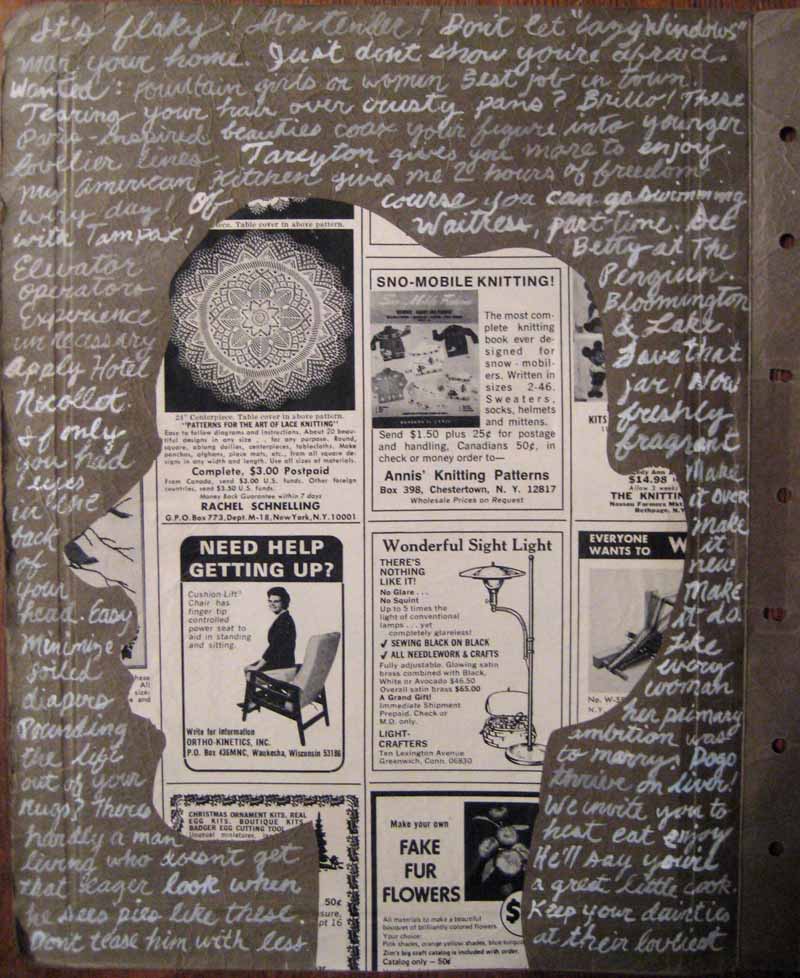 It's flaky! It's tender! Don't let "lazy Windows"
mar your home. Just don't show you're afraid.
Wanted: fountain girls or women Best job in town
Tearing your hair over crusty pans? Brillo! These
Paris-inspired beauties coax your figure into younger
lovelier lines. Tareyton gives you more to enjoy.
My American Kitchen gives me 2 hours of freedom
every day! Of course you can go swimming
with Tampax!
Elevator
operators
Experience
unnecessary
Apply Hotel
Nicollet
only
had
eyes
in the
back
of
your
head. Easy
Minimize
soiled
diapers
Pounding
the life
out of your
rugs? There's
hardly a man
living who doesn't get
that eager look when
he sees pies like these.
Don't tease him with less
Waitress, part-time. See
Betty at The
Penguin.
Bloomington
& Lake.
Save that
jar! Now
freshly
fragrant
Make
it over
make
it
new
Make
it do
Like
every
woman
her primary
ambition was
to marry. Dogs
thrive on liver!
We invite you to
heat eat enjoy
He'll say you're
a great little cook.
Keep your dainties
at their loveliest
piece. Table cover in above pattern.
24" Centerpiece. Table cover in above pattern.
"PATTERNS FOR THE ART OF LACE KNITTING"
Easy to follow diagrams and instructions. About 20 beau-
tiful designs in any size . . . for any purpose. Round,
square, oblong doilies, centerpieces, tablecloths. Make
ponchos, afghans, place mats, etc., from all square de-
signs in any width and length. Use all sizes of materials.
Complete, $3.00 Postpaid
From Canada, send $3.00 U.S. funds. Other foreign
countries, send $3.50 U.S. funds.
Money Back Guarantee within 7 days
RACHEL SCHNELLING
G.P.O. Box 773, Dept. M-18, New York, N.Y. 10001
SNO-MOBILE KNITTING!
The most com-
plete knitting
book ever de-
signed for
snow-mobil-
ers. Written in
sizes 2-46.
Sweaters,
socks, helmets
and mittens.
Send $1.50 plus 25¢ for postage
and handling, Canadians 50¢, in
check or money order to—
Annis' Knitting Patterns
Box 398, Chestertown, N. Y. 12817
Wholesale Prices on Request
KITS
$14.98
Allow 3 weeks
THE KNITTIN
Nassau Farmers Mkt.
Bethpage, N.Y.
NEED HELP
GETTING UP?
Cushion-Lift®
Chair has
finger tip
controlled
power seat to
aid in standing
and sitting.
Write for information
ORTHO-KINETICS, INC.
P.O. Box 436MNC, Waukesha, Wisconsin 53186
Wonderful Sight Light
THERE'S
NOTHING
LIKE IT!
No Glare . . .
No Squint
Up to 5 times the
light of conventional
lamps . . . yet
completely glareless!
✓ SEWING BLACK ON BLACK
✓ ALL NEEDLEWORK & CRAFTS
Fully adjustable. Glowing satin
brass combined with Black,
White or Avocado $46.50
Overall satin brass $65.00
A Grand Gift!
Immediate Shipment
Prepaid. Check or
M.O. only.
LIGHT-
CRAFTERS
Ten Lexington Avenue
Greenwich, Conn. 06830
EVERYONE
WANTS TO W
No. W-
N.Y.
these
All
sizes
and
CHRISTMAS ORNAMENT KITS, REAL
EGG KITS, BOUTIQUE KITS
BADGER EGG CUTTING TOOL
Unusual miniatures,
.50¢
sure,
pt 16
Make your own
FAKE
FUR
FLOWERS
$
All materials to make a beautiful
bouquet of brilliantly colored flowers.
Your choice:
Pink shades, orange yellow shades, blue-turquo
Zim's big craft catalog is included with order.
Catalog only — 50¢